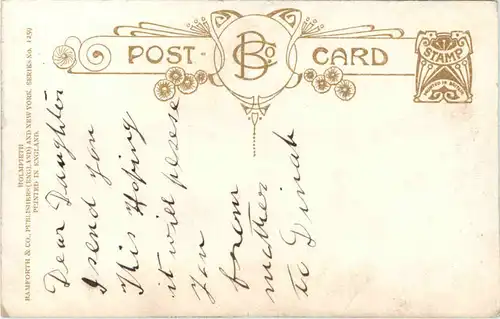 POST CARD
B Co.
STAMP
PRINTED IN
BAMFORTH & CO., PUBLISHERS (ENGLAND) AND NEW YORK. SERIES No. 1259
HOLMFIRTH
PRINTED IN ENGLAND.
Dear Daughtor
I send you
This Hoping
it will plese
you
from
mother
to Dinah